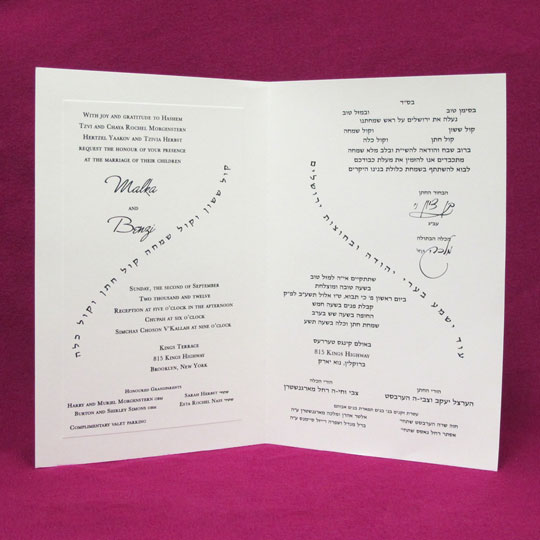 With joy and gratitude to Hashem
Tzvi and Chaya Rochel Morgenstern
Hertzel Yaakov and Tzivia Herbst
request the honour of your presence
at the marriage of their children
Malka
and
Benzi
Sunday, the second of September
Two thousand and twelve
Reception at five o'clock in the afternoon
Chupah at six o'clock
Simchas Choson V'Kallah at nine o'clock
Kings Terrace
815 Kings Highway
Brooklyn, New York
Honoured Grandparents
Harry and Muriel Morgenstern
Sarah Herbst שתחי׳
Burton and Shirley Simons
Elta Rochel Nass שתחי׳
Complimentary valet parking
קול ששון וקול שמחה קול חתן וקול כלה
עוד ישמע בערי יהודה ובחוצות ירושלים
בס״ד
בסימן טוב ובמזל טוב
נעלה את ירושלים על ראש שמחתנו
קול ששון וקול שמחה
קול חתן וקול כלה
ברוב שבח והודאה להשי״ת ובלב מלא שמחה
מתכבדים אנו להזמין את מעלת כבודכם
לבוא להשתתף בשמחת כלולת בנינו היקרים
הבחור החתן
בן ציון ני׳
עב״ג
הכלה הבתולה
מלכה
שתתקיים אי״ה למזל טוב
בשעה טובה ומוצלחת
ביום ראשון פ׳ כי תבוא, ט״ו אלול תשע״ב לפ״ק
קבלת פנים בשעה חמש
החופה בשעה שש בערב
שמחת חתן וכלה בשעה תשע
באולם קינגס טעררעס
815 Kings Highway
ברוקלין, נוא יארק
הורי החתן
הורי הכלה
הערצל יעקב וצבי׳ה הערבסט
צבי וחי׳ה רחל מארגנשטרן
חוה שרה הערבסט שתחי׳
אסתר רחל נאסס שתחי׳